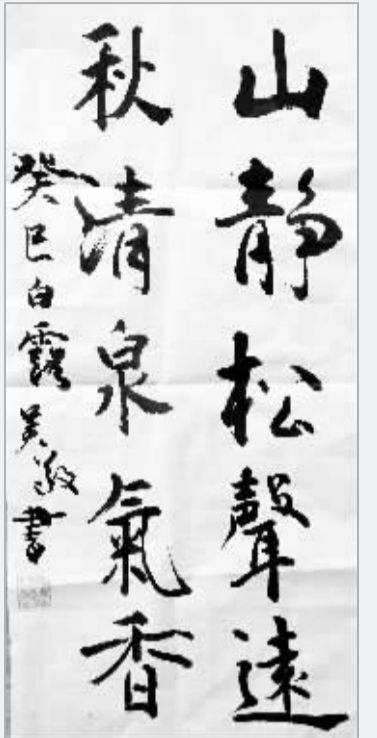 山靜松聲遠
秋清泉氣香
癸巳白露吳敬書